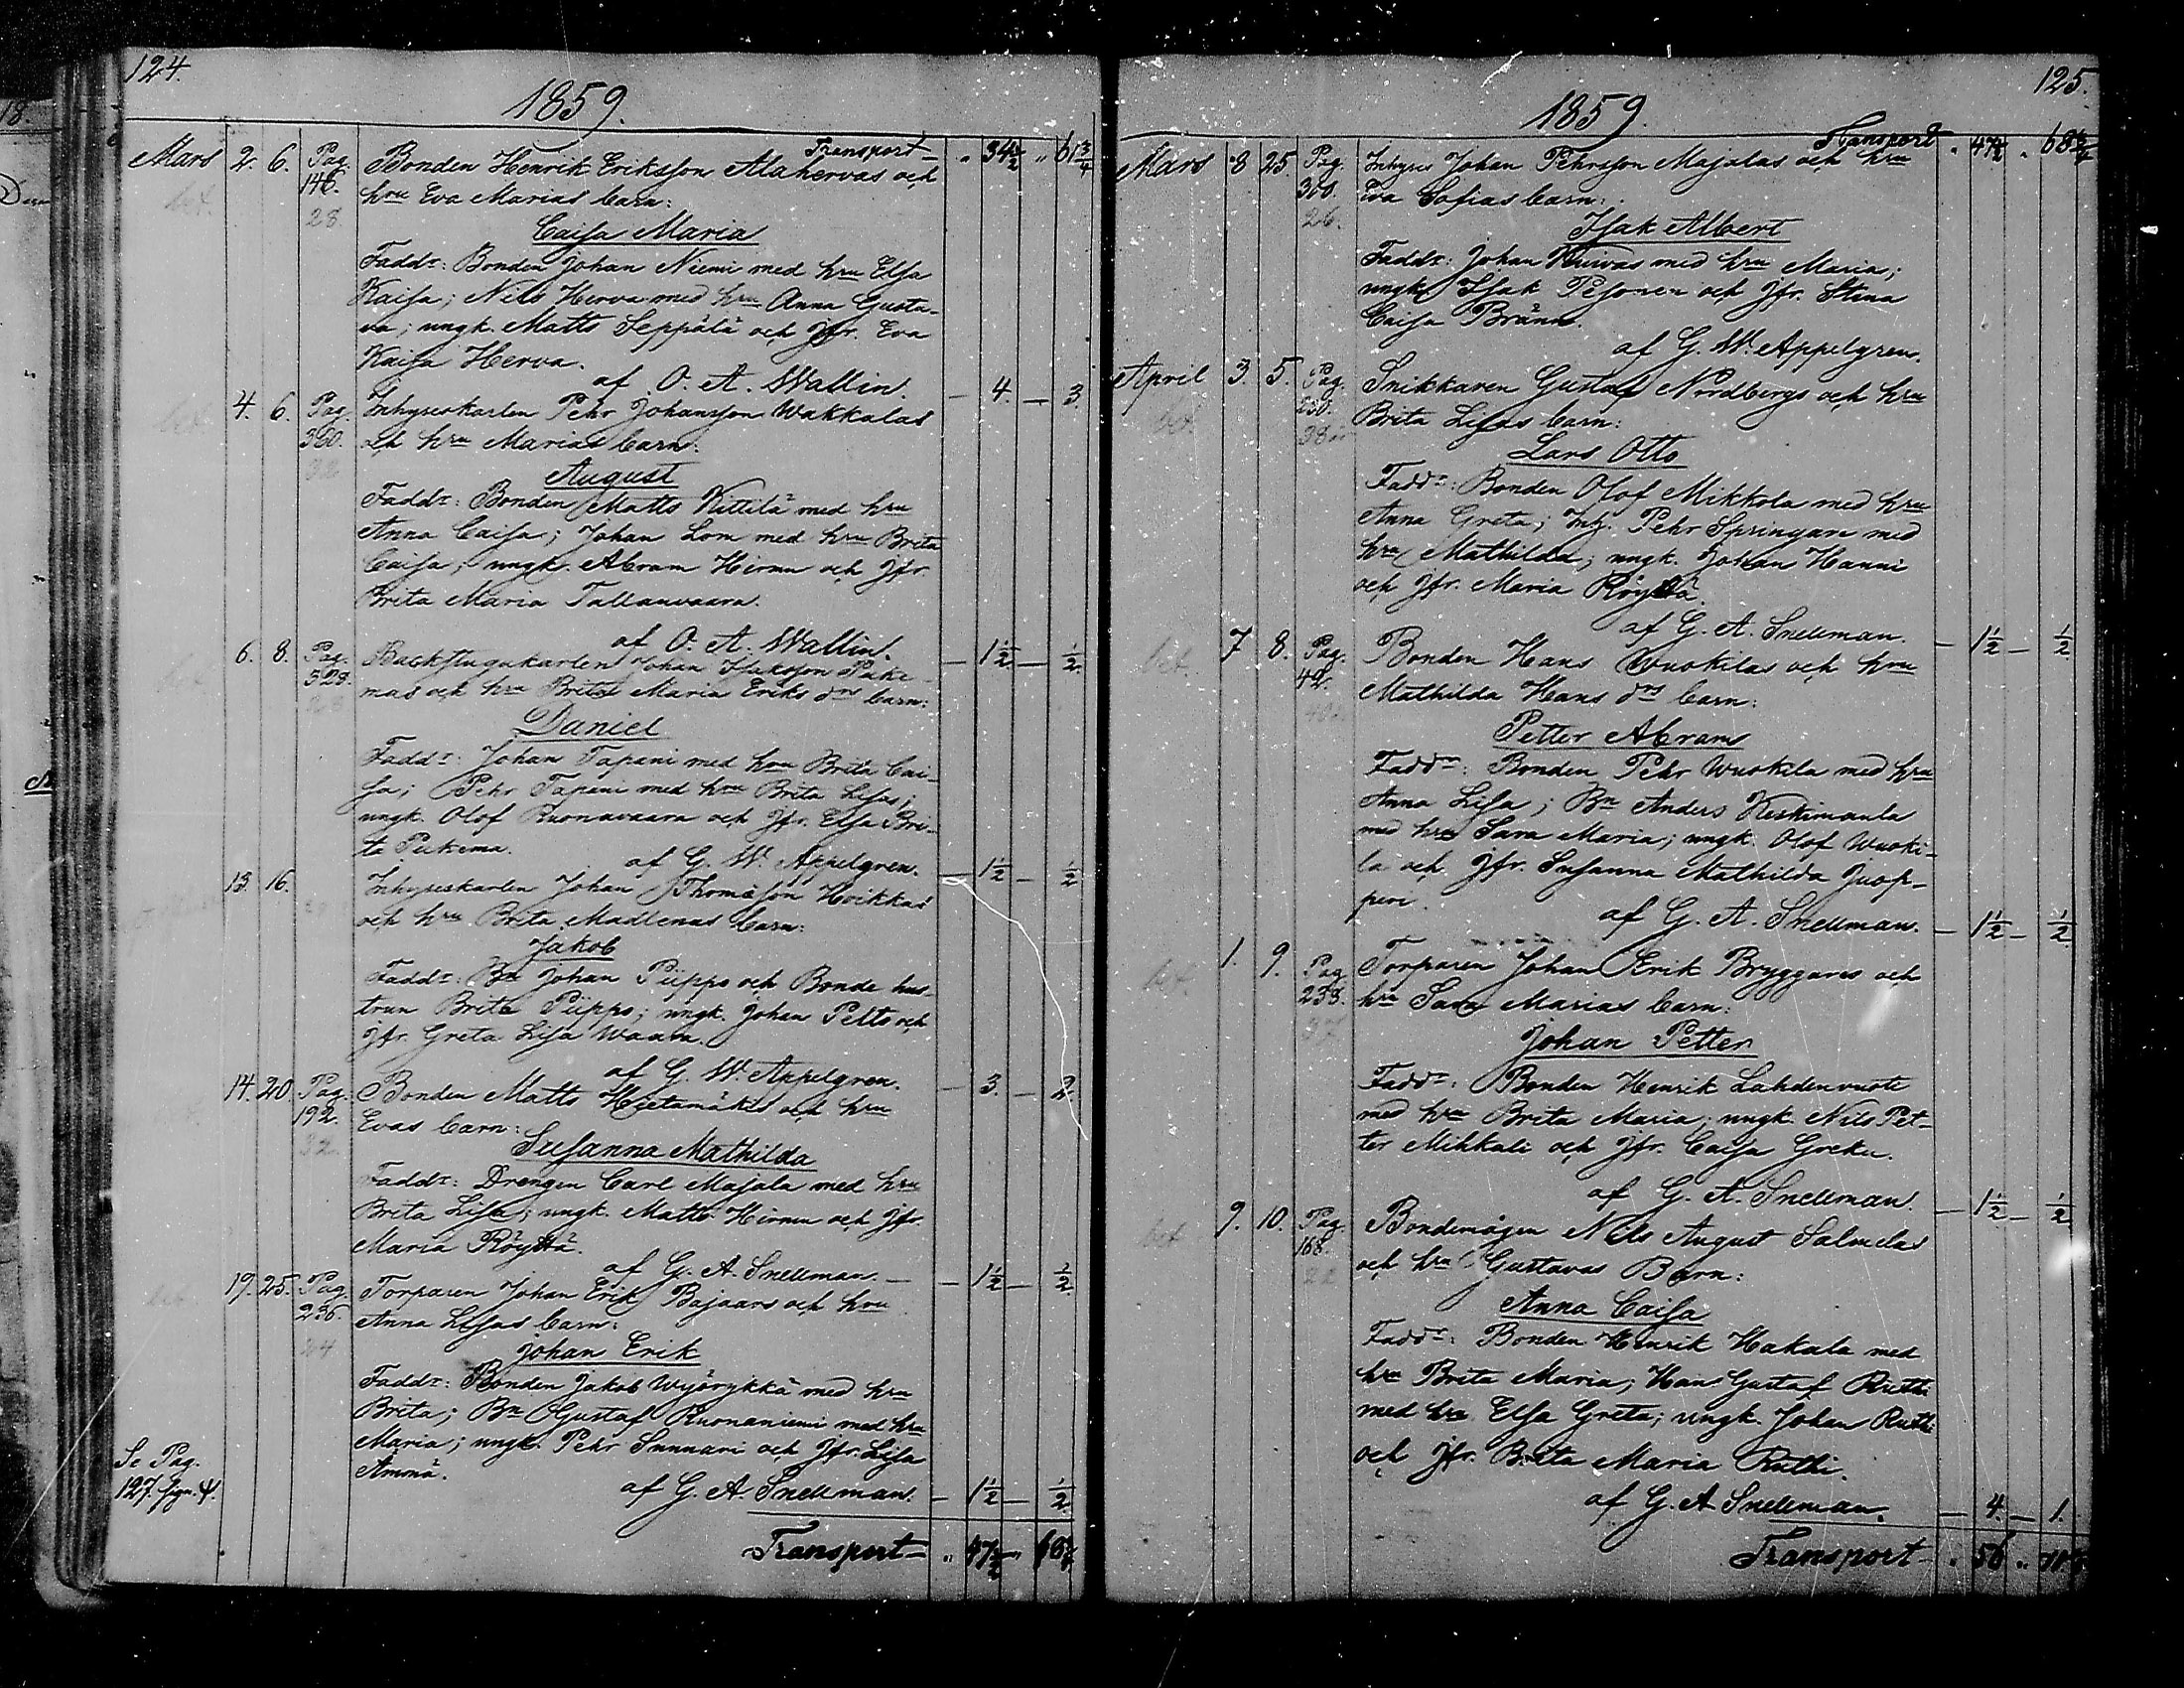 124.
1859.
Transport — " 34½ " 61¾
Mars 2. 6. Pag. 146. Bonden Henrik Eriksson Alahervas och
28. hru Eva Marias barn:
Caisa Maria
Faddr: Bonden Johan Niemi med hru Elsa
Kaisa; Nils Herva med hru Anna Gusta-
va; ungk. Matts Seppälä och Jfr. Eva
Kaisa Herva.
af O. A. Wallin. — 4. — 3.
bet. 4. 6. Pag. 360. Inhyseskarlen Pehr Johansson Wakkalas
32 och hru Marias barn:
August
Faddr: Bonden Matts Kittilä med hru
Anna Caisa; Johan Lom med hru Brita
Caisa; ungk. Abram Hirmu och Jfr.
Brita Maria Tallavaara.
af O. A. Wallin. — 1½ — ½
6. 8. Pag. 329. Backstugukarlen Johan Isaksson Puke-
mas och hru Brita Maria Eriks drs barn:
Daniel
Faddr: Johan Tapani med hru Brita Cai-
sa; Pehr Tapani med hru Brita Lisa;
ungk. Olof Ruonavaara och Jfr. Elsa Bri-
ta Pukema.
af G. W. Appelgren. — 1½ — ½
13. 16. Inhyseskarlen Johan Thomasson Hoikkas
och hru Brita Madlenas barn:
Jakob
Faddr: Bn Johan Piippo och Bonde hus-
trun Brita Piippo; ungk. Johan Pelto och
Jfr. Greta Lisa Waara.
af G. W. Appelgren. — 3. — 2.
14. 20. Pag. 192. Bonden Matts Hietamäkis och hru
32 Evas barn:
Susanna Mathilda
Faddr: Drengen Carl Majala med hru
Brita Lisa; ungk. Matts Hirmu och Jfr.
Maria Röyttä.
af G. A. Snellman. — 1½ — ½
bet. 19. 25. Pag. 236. Torparen Johan Erik Bajaars och hru
24 Anna Lisas barn:
Johan Erik
Faddr: Bonden Jakob Wyörykkä med hru
Brita; Bn Gustaf Ruonaniemi med hru
Maria; ungk. Pehr Sunnari och Jfr. Lisa
Ammä.
Se Pag.
127.
af G. A. Snellman. — 1½ — ½
Transport — " 47½ — " 68¾
125.
1859.
Transport " 47½ " 68¾
Mars 8 25. Pag. 300. Inhyses Johan Pehrsson Majalas och hru
26. Eva Sofias barn:
Isak Albert
Faddr: Johan Kuivas med hru Maria;
ungk. Isak Pesonen och Jfr. Stina
Caisa Bränn.
af G. W. Appelgren.
April 3. 5. Pag. 250. Snikkaren Gustaf Nordbergs och hru
bet. 38 Brita Lisas barn:
Lars Otto
Faddr: Bonden Olof Mikkola med hru
Anna Greta; Inh. Pehr Springare med
hru Mathilda; ungk. Johan Hanni
och Jfr. Maria Röyttä
af G. A. Snellman. — 1½ — ½
bet. 7 8. Pag. 42. Bonden Hans Wuokilas och hru
Mathilda Hans drs barn:
Petter Abram
Faddr: Bonden Pehr Wuokila med hru
Anna Lisa; Bn Anders Keskimaula
med hru Sara Maria; ungk. Olof Wuoki-
la och Jfr. Susanna Mathilda Juop-
peri.
af G. A. Snellman. — 1½ — ½
bet. 1. 9. Pag. 238. Torparen Johan Erik Bryggares och
37 hru Sara Marias barn:
Johan Petter
Faddr: Bonden Henrik Lahdenvuoti
med hru Brita Maria; ungk. Nils Pet-
ter Mikkali och Jfr. Caisa Greku.
af G. A. Snellman. — 1½ — ½
bet 9. 10. Pag. 168. Bondemågen Nils August Salmelas
22 och hru Gustavas Barn:
Anna Caisa
Faddr: Bonden Henrik Hakala med
hru Brita Maria; Hans Gustaf Ruthi
med hru Elsa Greta; ungk. Johan Ruthi
och Jfr. Brita Maria Ruthi.
af G. A. Snellman. — 4. — 1.
Transport — " 56 "